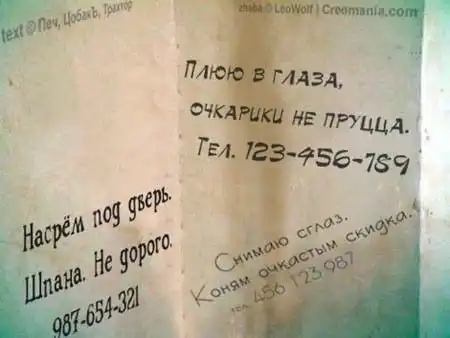 text © Печ, ЦобакЪ, Трактор
zhaba © LeoWolf | Creomania.com
Плюю в глаза,
очкарики не пруцца.
Тел. 123-456-789
Насрём под дверь.
Шпана. Не дорого.
987-654-321
Снимаю сглаз.
Коням очкастым скидка.
тел. 456 123 987